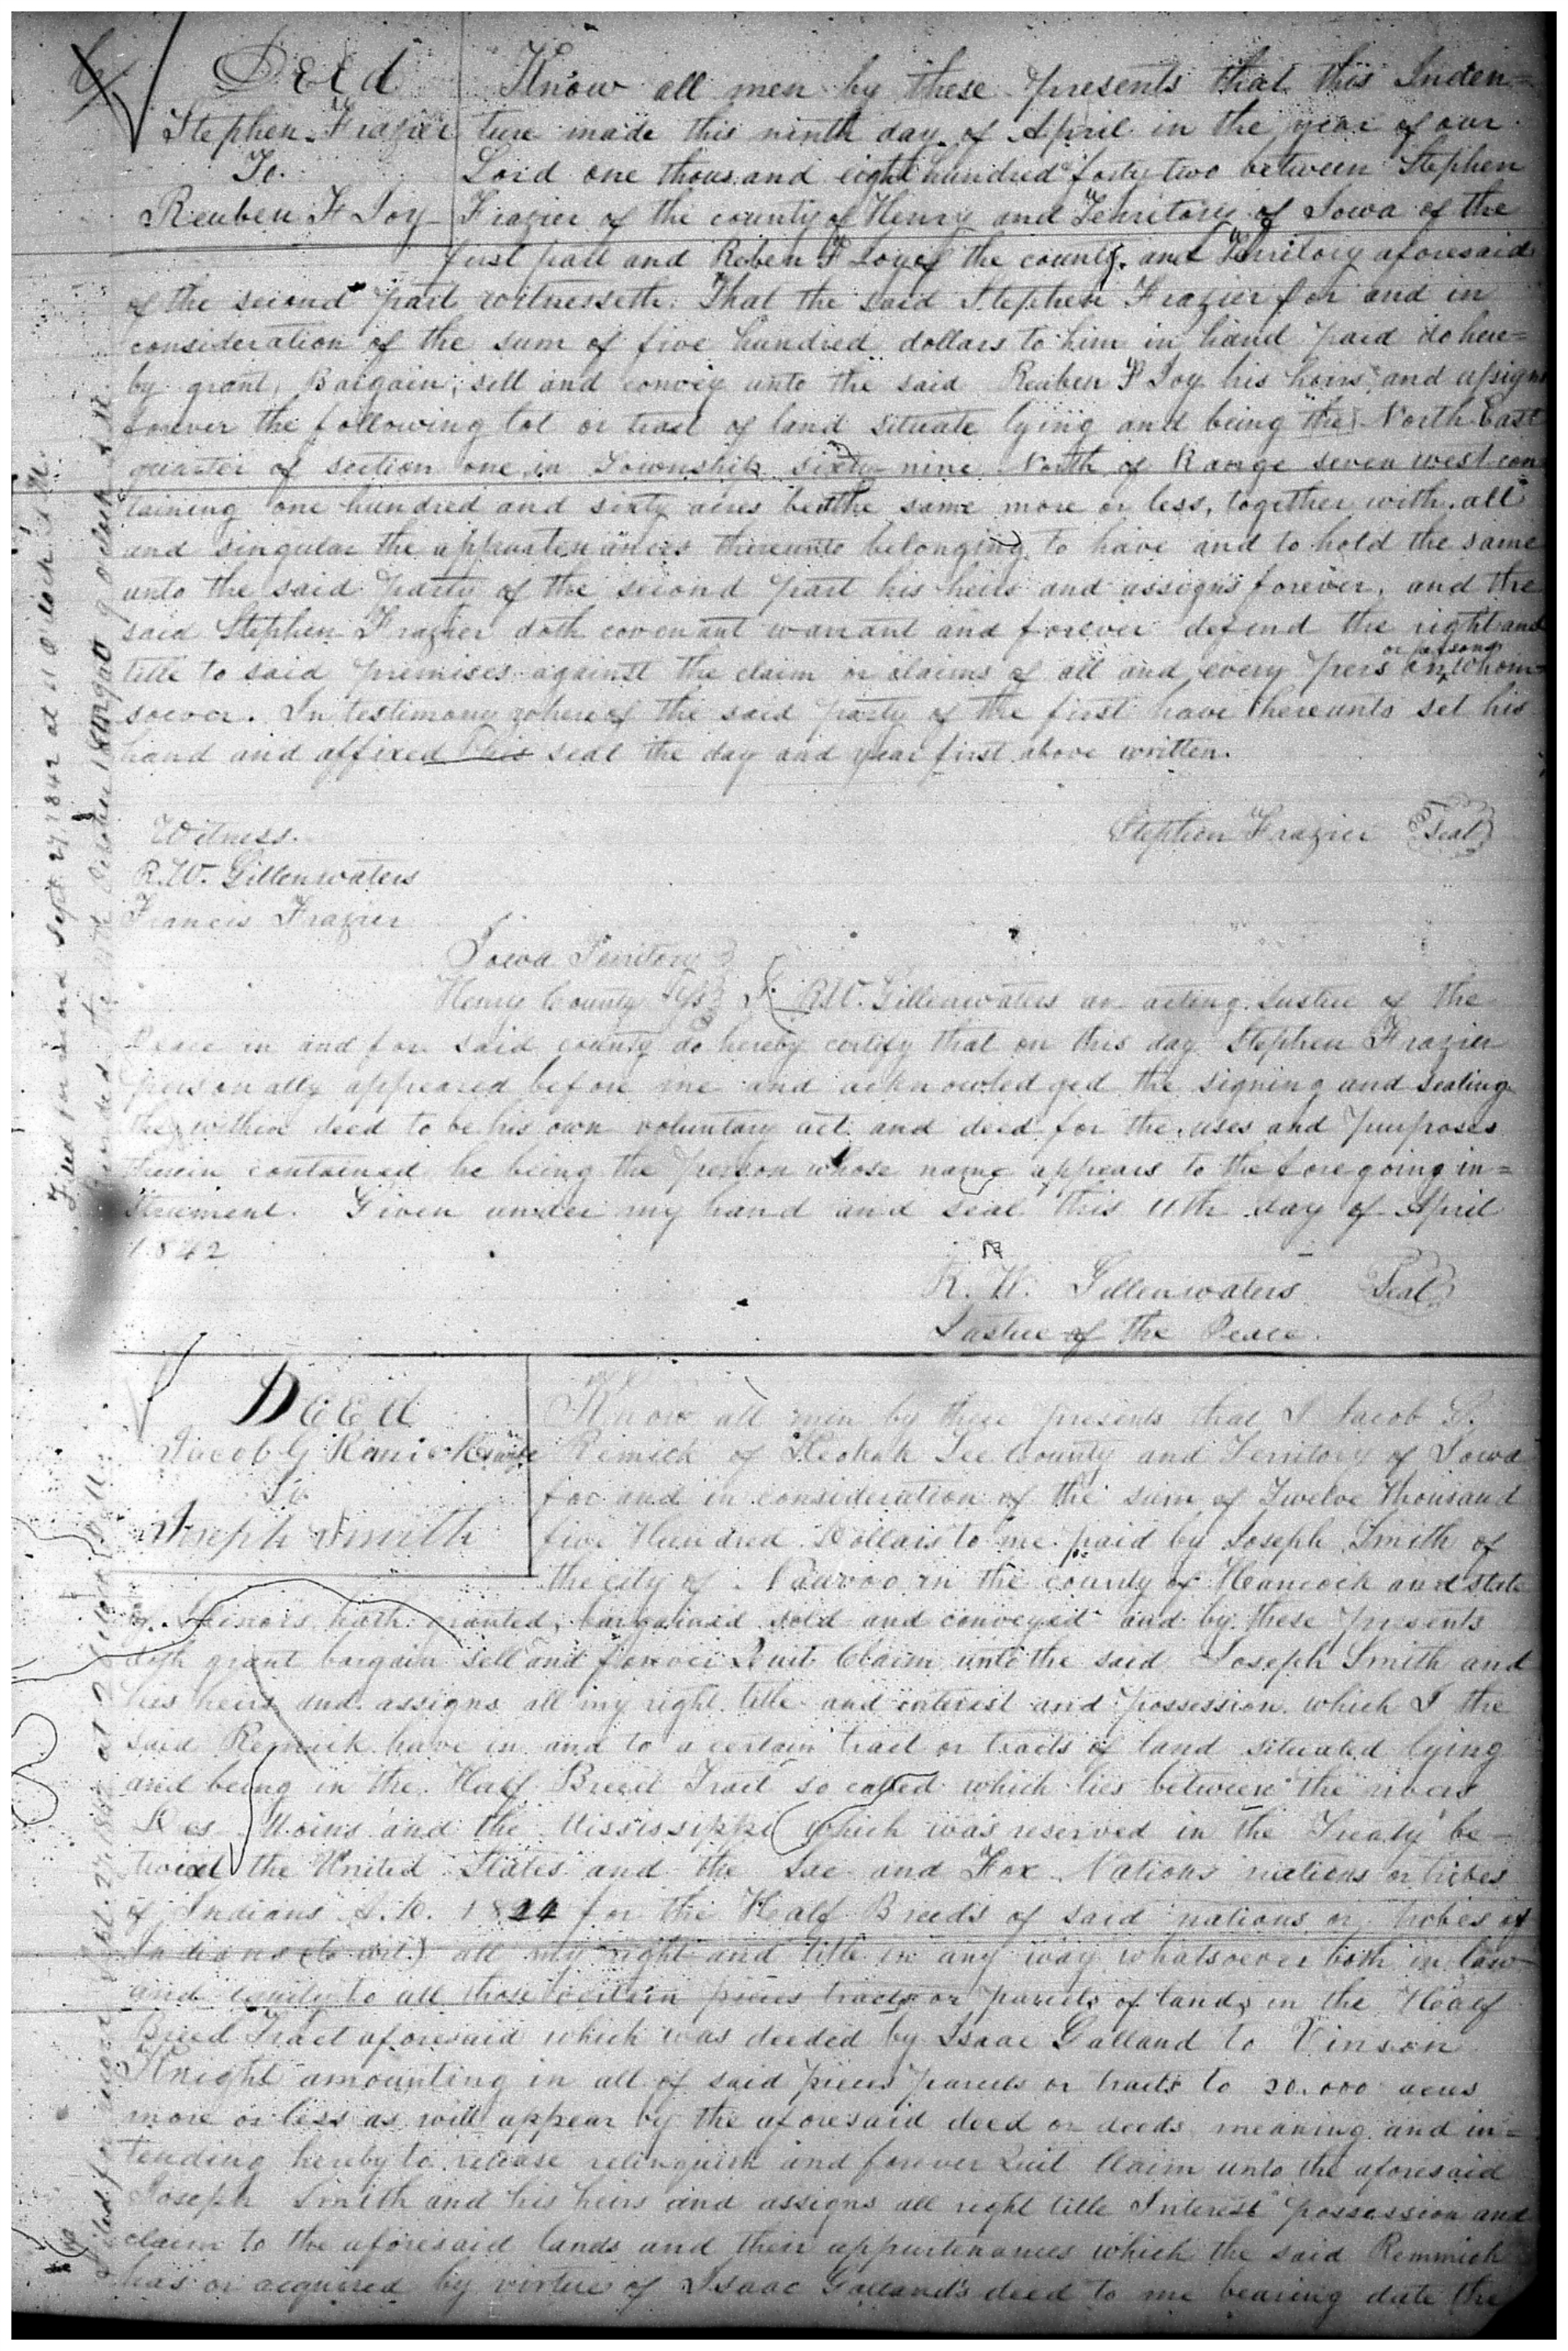 Deed
Stephen Frazier
To
Reuben F Joy
Know all men by these presents that this Inden=
ture made this ninth day of April in the year of our
Lord one thousand eight hundred & forty two between Stephen
Frazier of the county of Henry and Territory of Iowa of the
first part and Reben F Joy of the county and Territory aforesaid
of the second part witnesseth. That the said Stephen Frazier for and in
consideration of the sum of five hundred dollars to him in hand paid do here=
by grant, Bargain, sell and convey unto the said Reuben F Joy his heirs and assigns
forever the following lot or tract of land situate lying and being the North East
quarter of section one in Township sixty nine North of Range seven west con
taining one hundred and sixty acres be the same more or less, together with all
and singular the appurtenances thereunto belonging to have and to hold the same
unto the said party of the second part his heirs and assigns forever, and the
said Stephen Frazier doth covenant warrant and forever defend the right and
title to said premises against the claim or claims of all and every person or persons whom=
soever. In testimony whereof the said party of the first have hereunto set his
hand and affixed his seal the day and year first above written.
Witness.
R.W. Gillenwaters
Francis Frazier
Stephen Frazier Seal
Iowa Territory
Henry County I R.W. Gillenwaters an acting Justice of the
Peace in and for said county do hereby certify that on this day Stephen Frazier
personally appeared before me and acknowledged the signing and sealing
the within deed to be his own voluntary act and deed for the uses and purposes
therein contained he being the person whose name appears to the foregoing in=
strument. Given under my hand and seal this 11th day of April
1842
R. W. Gillenwaters Seal
Justice of the Peace.
Filed for record Sept. 27 1842 at 11 o'clock A.M.
Recorded the October 9 o'clock A.M.
Deed
Jacob G Remick
To
Joseph Smith
Know all men by these presents that I Jacob G.
Remick of Keokuk Lee County and Territory of Iowa
for and in consideration of the sum of Twelve Thousand
five Hundred Dollars to me paid by Joseph Smith of
the city of Nauvoo in the county of Hancock and state
of Illinois hath granted, bargained sold and conveyed and by these presents
doth grant bargain sell and forever Quit Claim unto the said Joseph Smith and
his heirs and assigns all my right title and interest and possession which I the
said Remick have in and to a certain tract or tracts of land situated lying
and being in the Half Breed Tract so called which lies between the rivers
Des Moins and the Mississippi which was reserved in the Treaty be=
twixt the United States and the Sac and Fox Nations nations or tribes
of Indians A.D. 1824 for the Half Breeds of said nations or tribes of
Indians (to wit.) all my right and title in any way whatsoever both in law
and equity to all those certain pieces tracts or parcels of lands in the Half
Breed Tract aforesaid which was deeded by Isaac Galland to Vinson
Knight amounting in all of said pieces parcels or tracts to 20.000 acres
more or less as will appear by the aforesaid deed or deeds meaning and in=
tending hereby to release relinquish and forever Quit Claim unto the aforesaid
Joseph Smith and his heirs and assigns all right title Interest possession and
claim to the aforesaid lands and their appurtenances which the said Remmick
has or acquired by virtue of Isaac Galland's deed to me bearing date the
Filed for record at 2 o'clock P.M.